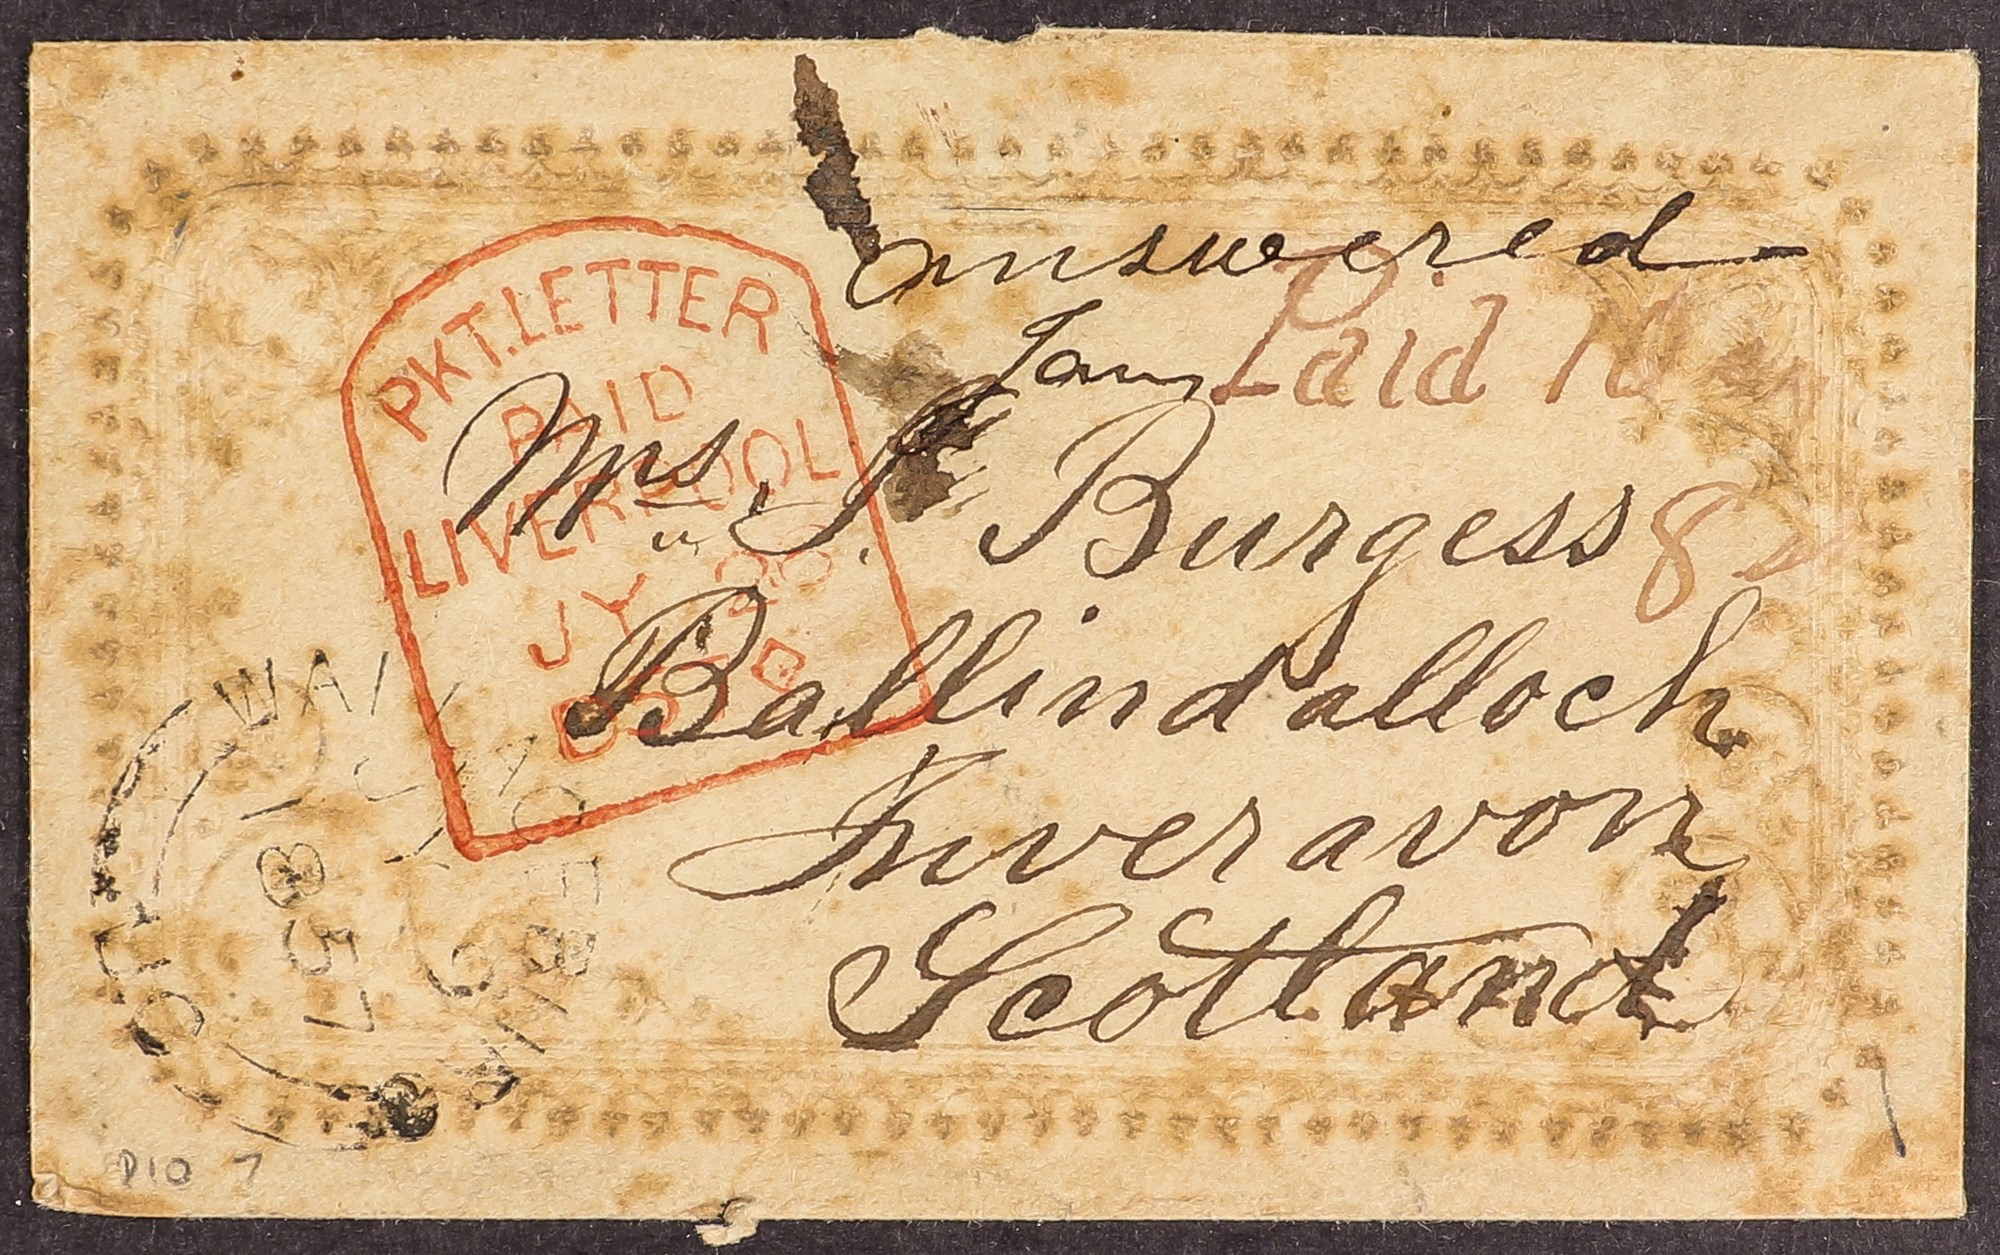 answered
Jany Paid 10
PKT. LETTER
PAID
LIVERPOOL
JY
Mrs. J. Burgess 8
Ballindalloch
Inveravon
Scotland
1857
P10 7